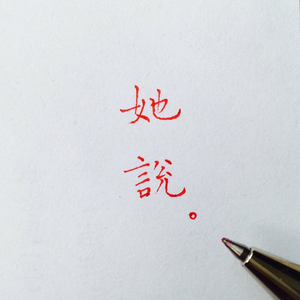 她說。